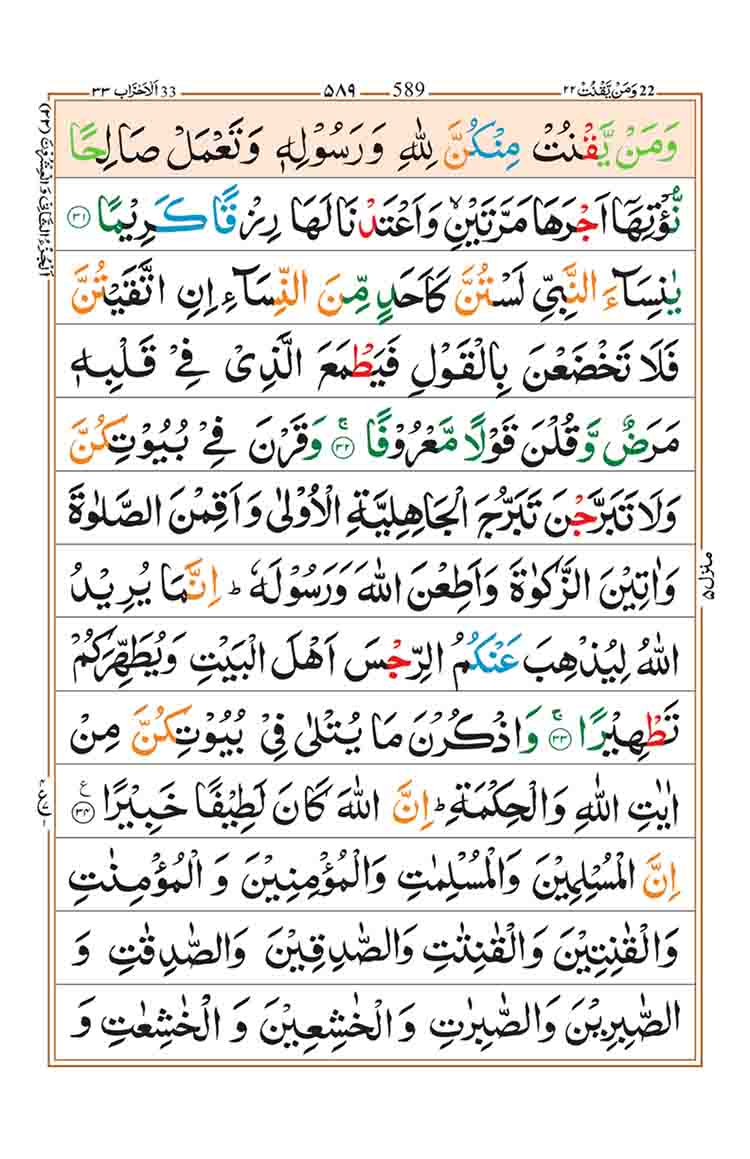 22 وَمَنْ يَّقْنُتْ ٢٢ 589 ۵۸۹ 33 اَلْاَحْزَاب ٣٣
وَمَنْ يَّقْنُتْ مِنْكُنَّ لِلّٰهِ وَ رَسُوْلِهٖ وَ تَعْمَلْ صَالِحًا
نُّؤْتِهَاۤ اَجْرَهَا مَرَّتَيْنِۙ وَ اَعْتَدْنَا لَهَا رِزْقًا كَرِيْمًا ﴿٣١﴾
يٰنِسَآءَ النَّبِيِّ لَسْتُنَّ كَاَحَدٍ مِّنَ النِّسَآءِ اِنِ اتَّقَيْتُنَّ
فَلَا تَخْضَعْنَ بِالْقَوْلِ فَيَطْمَعَ الَّذِيْ فِيْ قَلْبِهٖ
مَرَضٌ وَّ قُلْنَ قَوْلًا مَّعْرُوْفًا ۚ﴿٣٢﴾ وَ قَرْنَ فِيْ بُيُوْتِكُنَّ
وَلَا تَبَرَّجْنَ تَبَرُّجَ الْجَاهِلِيَّةِ الْاُوْلٰى وَ اَقِمْنَ الصَّلٰوةَ
وَاٰتِيْنَ الزَّكٰوةَ وَ اَطِعْنَ اللّٰهَ وَرَسُوْلَهٗ ؕ اِنَّمَا يُرِيْدُ
اللّٰهُ لِيُذْهِبَ عَنْكُمُ الرِّجْسَ اَهْلَ الْبَيْتِ وَيُطَهِّرَكُمْ
تَطْهِيْرًا ۚ﴿٣٣﴾ وَاذْكُرْنَ مَا يُتْلٰى فِيْ بُيُوْتِكُنَّ مِنْ
اٰيٰتِ اللّٰهِ وَالْحِكْمَةِ ؕ اِنَّ اللّٰهَ كَانَ لَطِيْفًا خَبِيْرًا ﴿٣٤﴾ ع
اِنَّ الْمُسْلِمِيْنَ وَالْمُسْلِمٰتِ وَالْمُؤْمِنِيْنَ وَ الْمُؤْمِنٰتِ
وَالْقٰنِتِيْنَ وَالْقٰنِتٰتِ وَالصّٰدِقِيْنَ وَالصّٰدِقٰتِ وَ
الصّٰبِرِيْنَ وَالصّٰبِرٰتِ وَ الْخٰشِعِيْنَ وَ الْخٰشِعٰتِ وَ
اَلْجُزْءُ الثَّانِيْ وَالْعِشْرُوْنَ (٢٢)
منزل ۵